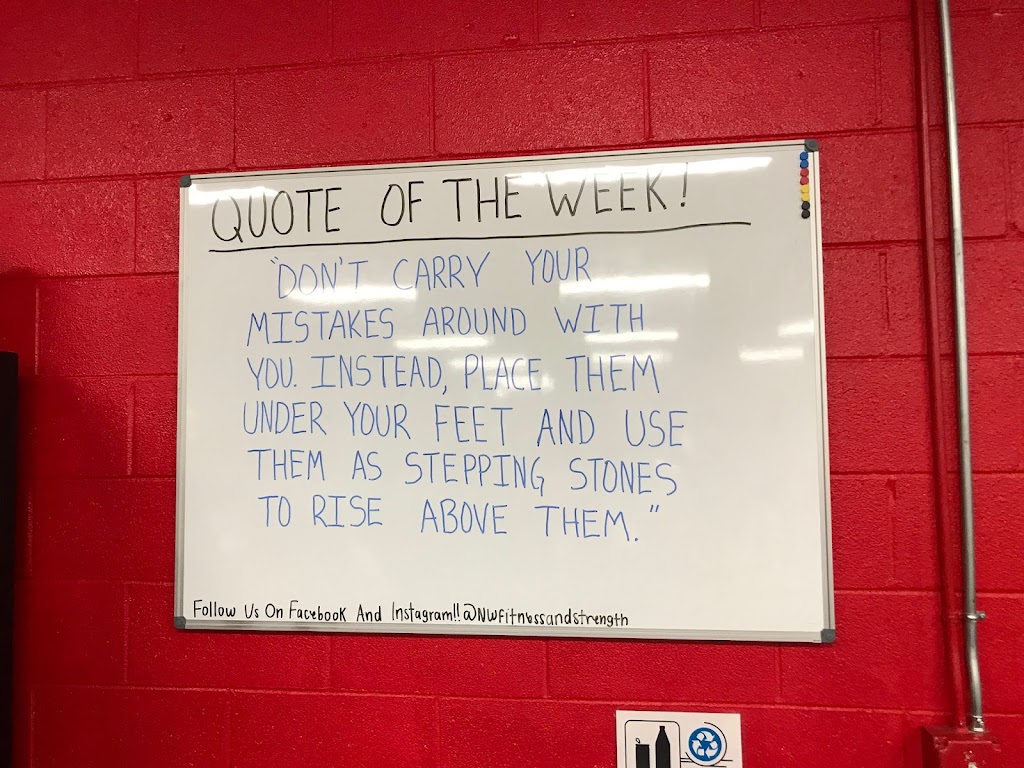 QUOTE OF THE WEEK!
"DON'T CARRY YOUR
MISTAKES AROUND WITH
YOU. INSTEAD, PLACE THEM
UNDER YOUR FEET AND USE
THEM AS STEPPING STONES
TO RISE ABOVE THEM."
Follow Us On Facebook And Instagram!! @NWFitnessandstrength